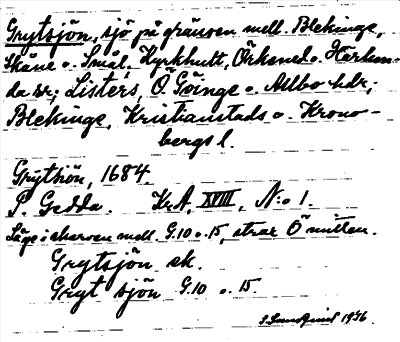 Grytsjön, sjö på gränsen mell. Blekinge,
Skåne o. Smål., Kyrkhult, Örkened o. Härlun-
da sr; Listers, Ö. Göinge o. Allbo hdr;
Blekinge, Kristianstads o. Krono-
bergs l.
Grÿtsiön, 1684.
P. Gedda. KrA, XVIII, N:o 1.
Läge i skarven mell. G.10 o. 15, strax Ö mitten.
Grytsjön ek.
Gryt sjön G.10 o. 15
1936